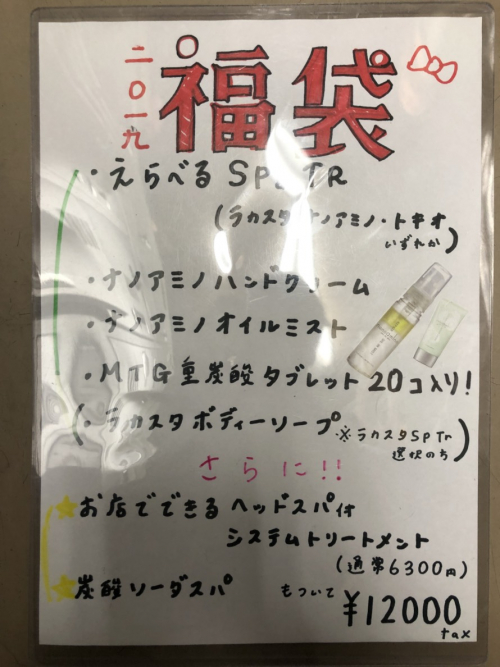 二〇一九
福袋
・えらべるSP TR
(ラカスタ・ナノアミノ・トキオ
いずれか)
・ナノアミノハンドクリーム
・ナノアミノオイルミスト
・MTG重炭酸タブレット20コ入り!
(・ラカスタボディーソープ ※ラカスタSPTr
選択のち)
さらに!!
お店でできるヘッドスパ付
システムトリートメント
(通常6300円)
炭酸ソーダスパ
もついて ¥12000
tax